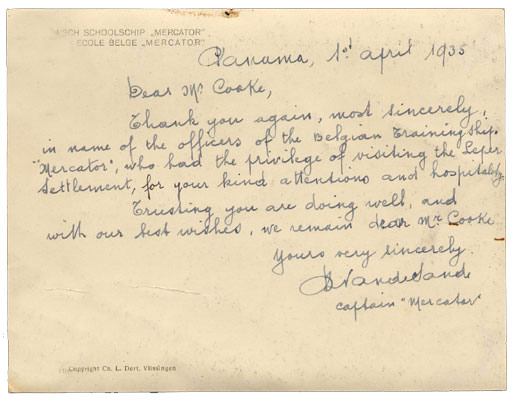 SCH SCHOOLSCHIP „MERCATOR"
ECOLE BELGE „MERCATOR"
Panama, 1st april 1935
Dear Mr Cooke,
Thank you again, most sincerely,
in name of the officers of the Belgian Training Ship
"Mercator", who had the privilege of visiting the Leper
Settlement, for your kind attentions and hospitality
Trusting you are doing well, and
with our best wishes, we remain dear Mr Cooke
Yours very sincerely.
VandeSande
captain "Mercator"
Copyright Ch. L. Dert, Vlissingen